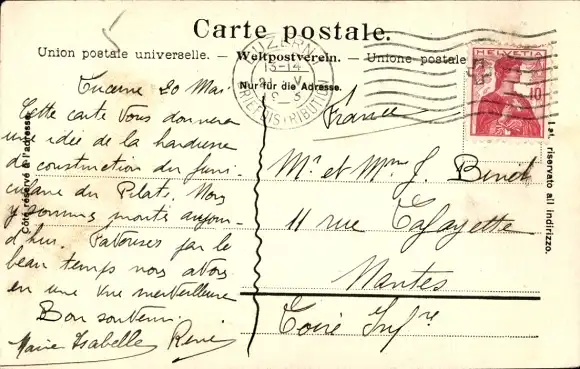 Carte postale.
Union postale universelle. — Weltpostverein. — Unione postale
Nur für die Adresse.
LUZERN 1
13-14
V
BRIEFDISTRIBUTION
HELVETIA
10
Côté réservé à l'adresse.
riservato all indirizzo.
Lucerne 20 Mai
Cette carte vous donnera
une idée de la hardiesse
de construction du funi-
culaire du Pilat. Nous
y sommes montés aujour-
d'hui. Favorisés par le
beau temps nous avons
eu une vue merveilleuse
Bon souvenir.
Marie Isabelle René
France
Mr et Mme J. Binet
11 rue Lafayette
Nantes
Loire Infre